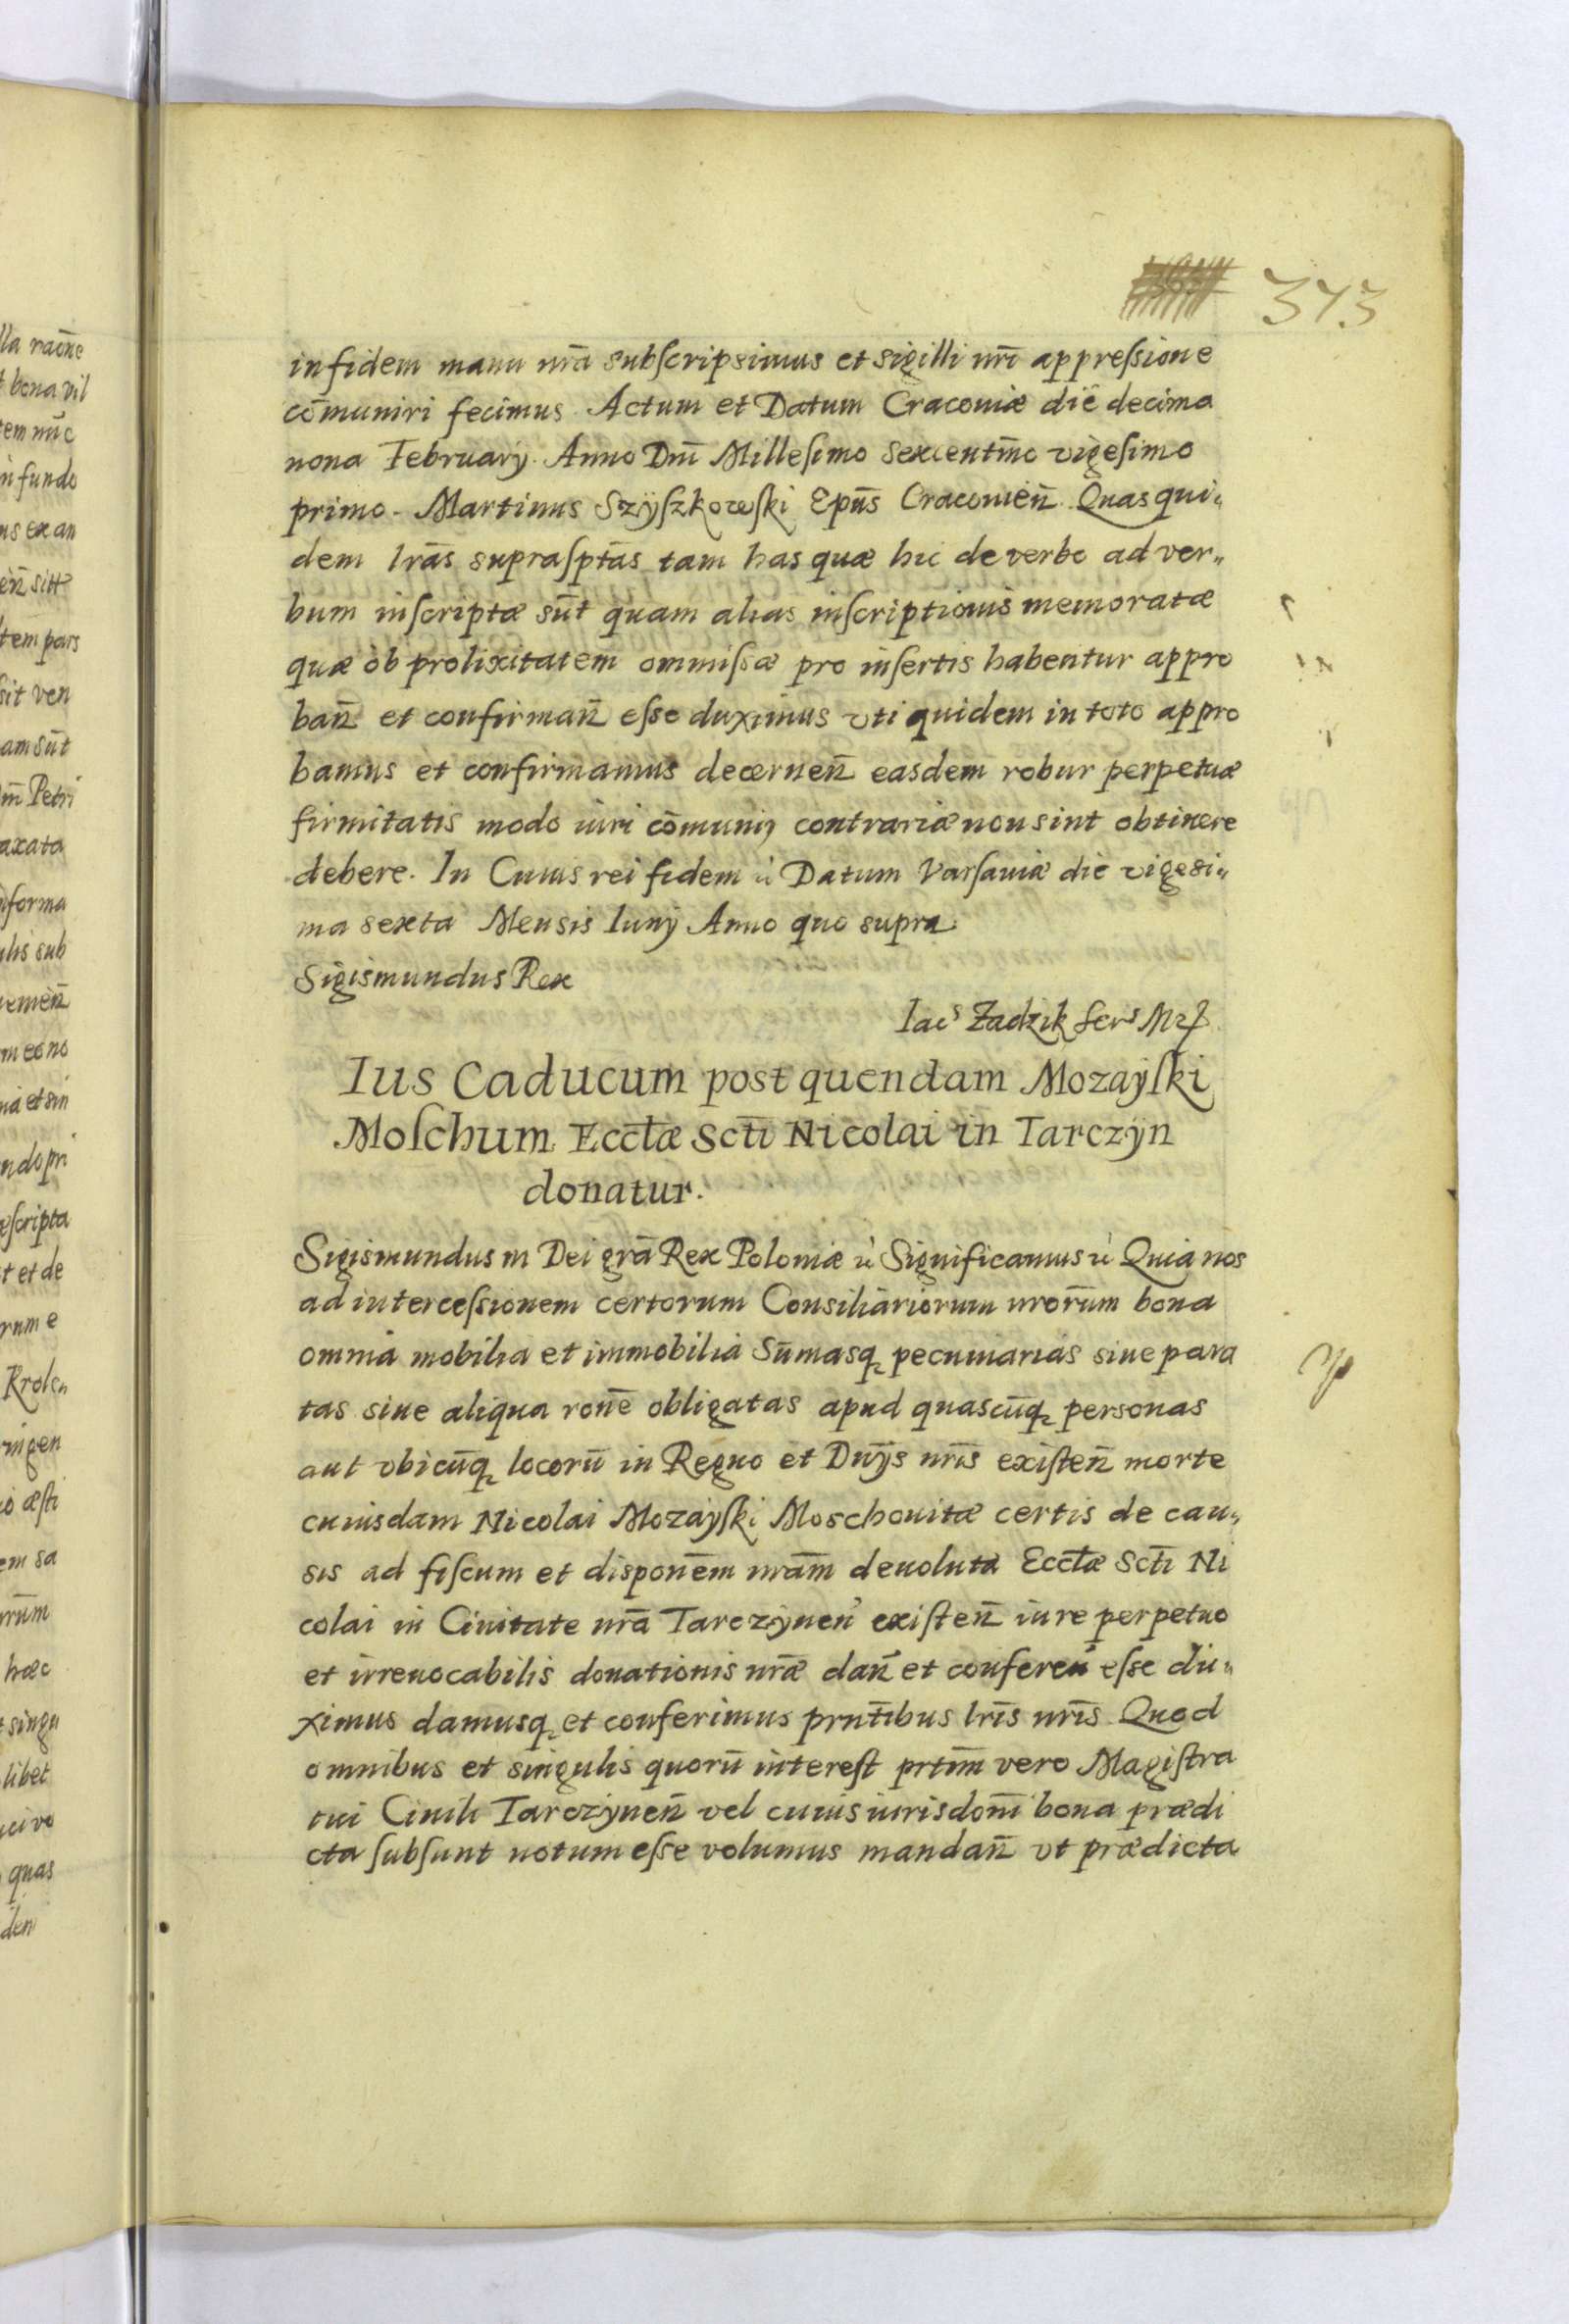 373
in fidem manu nrã subscripsimus et sigilli nrĩ appreſsione
cõmuniri fecimus. Actum et Datum Cracoviæ die decima
nona February. Anno Dnĩ Milleſimo Sexcentm̃o vigeſimo
primo. Martinus Szÿſzkowſki Epũs Cracovien̄. Quas qui„
dem lrãs supraſptãs tam has quæ hic de verbo ad ver„
bum inſcriptæ sũt quam alias inſcriptionis memoratæ
quæ ob prolixitatem ommiſsæ pro inſertis habentur appro
ban̄ et confirman̄ eſse duximus vti quidem in toto appro
bamus et confirmamus decernen̄ easdem robur perpetuæ
firmitatis modo iuri cõmuni contrariæ non sint obtinere
debere. In Cuius rei fidem ũ Datum Varſaviæ die vigesi„
ma sexta Mensis Iunÿ Anno quo supra
Sigismundus Rex
Iacs Zadzik Secrs Mr̃
Ius Caducum post quendam Mozaÿſki
Moſchum Ecclæ Sctĩ Nicolai in Tarczÿn
donatur.
Sigismundus III Dei grã Rex Poloniæ ũ Significamus ũ Quia nos
ad interceſsionem certorum Consiliariorum nrorũm bona
omnia mobilia et immobilia Sũmasq pecuniarias siue para
tas siue aliqua ronẽ obligatas apud quascũq personas
aut vbicũq locorũ in Regno et Dnÿs nrĩs exiſten̄ morte
cuiusdam Nicolai Mozaÿſki Moschouitæ certis de cau„
sis ad fiſcum et disponẽm nrãm deuoluta Ecclæ Sctĩ Ni
colai in Ciuitate nrã Tarczÿnen̄ exiſten̄ iure perpetuo
et irreuocabilis donationis nræ̃ dan̄ et conferen̄ eſse du„
ximus damusq et conferimus prntĩbus lrĩs nrĩs. Quod
omnibus et singulis quorũ intereſt prtĩm vero Magiſtra
tui Ciuili Tarczÿnen̄ vel cuius iurisdonĩ bona prædi
cta ſubſunt notum eſse volumus mandan̄ vt prædicta